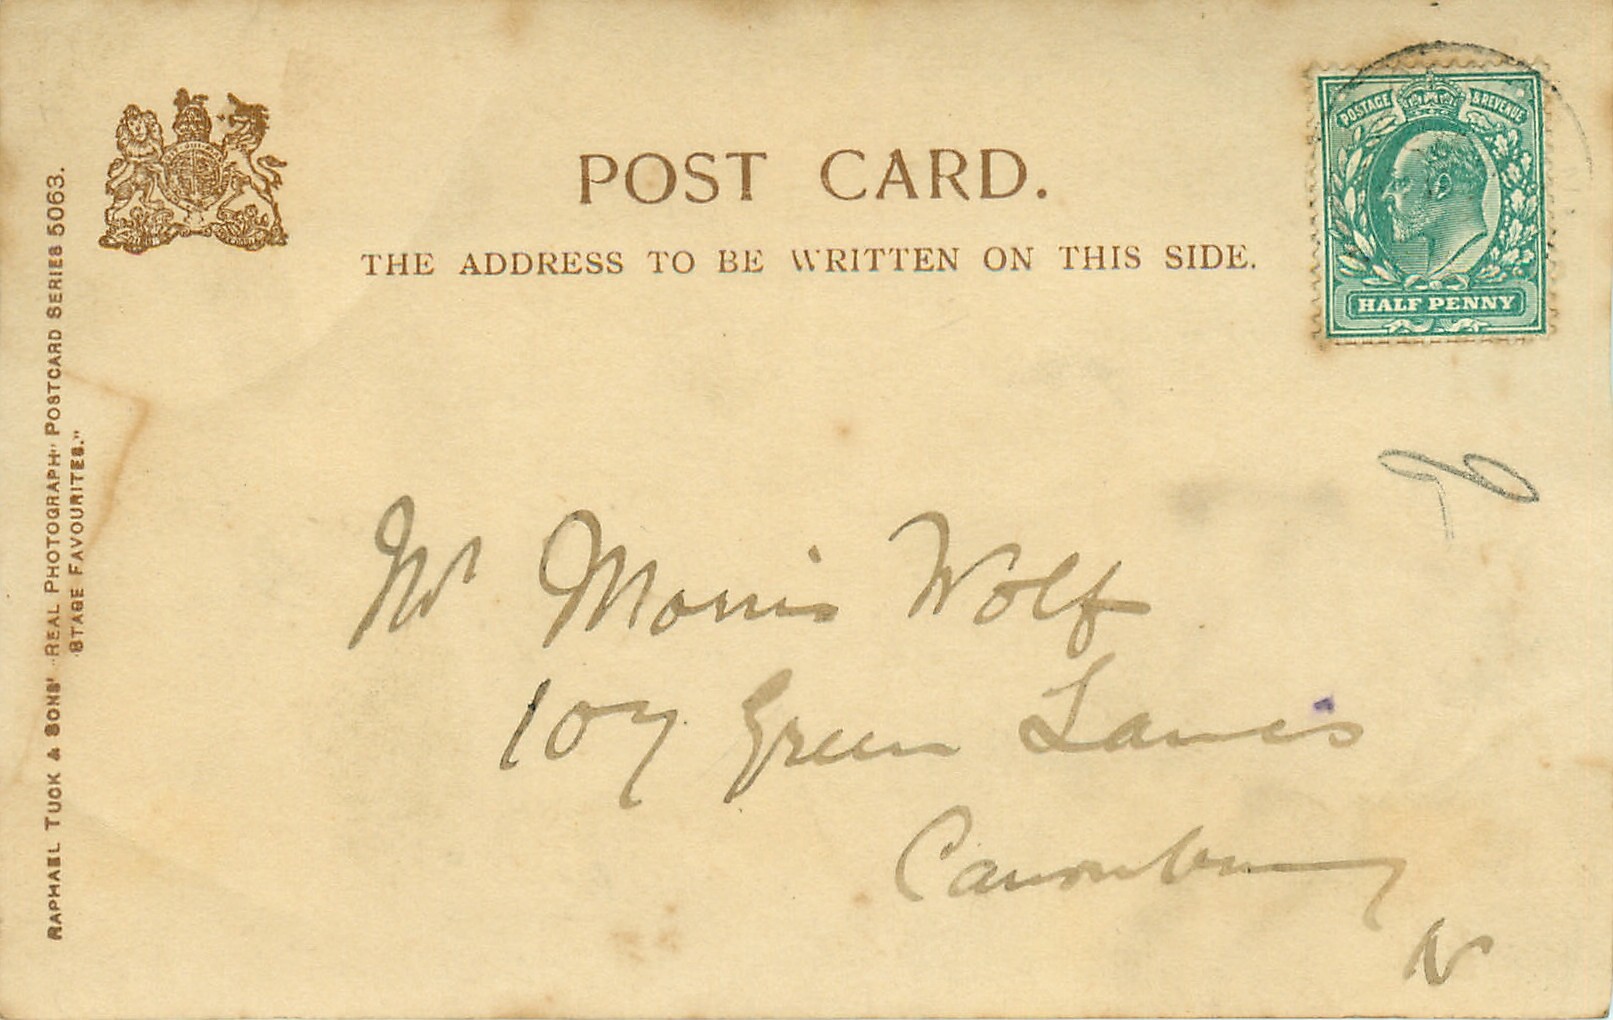 POST CARD.
THE ADDRESS TO BE WRITTEN ON THIS SIDE.
POSTAGE & REVENUE
HALF PENNY
RAPHAEL TUCK & SONS' "REAL PHOTOGRAPH" POSTCARD SERIES 5063.
"STAGE FAVOURITES."
Mr Morris Wolf
107 Green Lanes
Canonbury
N